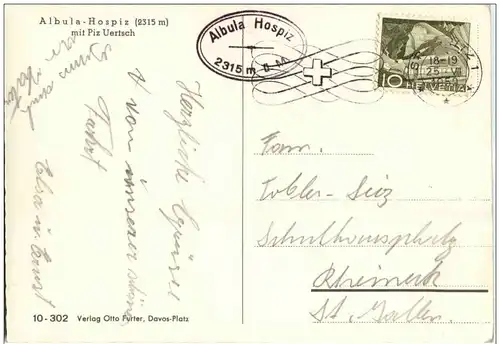 Albula-Hospiz (2315 m)
mit Piz Uertsch
Albula Hospiz
2315 m ü. M.
18-19
25. VII
10 HELVETIA
Herzliche Grüsse
von unserer schönen
Fahrt
Elsa u. Ernst
Fam.
Tobler-Seiz
Schulhausplatz
Rheineck
St. Gallen
10-302 Verlag Otto Furter, Davos-Platz